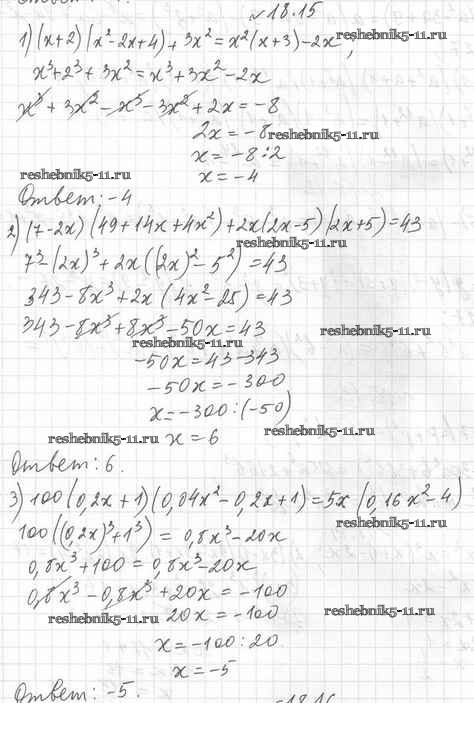 №18.15
1) (x+2)(x²-2x+4)+3x²=x²(x+3)-2x;
reshebnik5-11.ru
x³+2³+3x²=x³+3x²-2x
x³+3x²-x³-3x²+2x=-8
2x=-8
reshebnik5-11.ru
x=-8:2
reshebnik5-11.ru
x=-4
Ответ: -4
2) (7-2x)(49+14x+4x²)+2x(2x-5)(2x+5)=43
reshebnik5-11.ru
7³-(2x)³+2x((2x)²-5²)=43
343-8x³+2x(4x²-25)=43
343-8x³+8x³-50x=43
reshebnik5-11.ru
reshebnik5-11.ru
-50x=43-343
-50x=-300
x=-300:(-50)
reshebnik5-11.ru
reshebnik5-11.ru
x=6
Ответ: 6.
3) 100(0,2x+1)(0,04x²-0,2x+1)=5x(0,16x²-4)
reshebnik5-11.ru
100((0,2x)³+1³)=0,8x³-20x
0,8x³+100=0,8x³-20x
0,8x³-0,8x³+20x=-100
reshebnik5-11.ru
20x=-100
reshebnik5-11.ru
x=-100:20
x=-5
Ответ: -5.